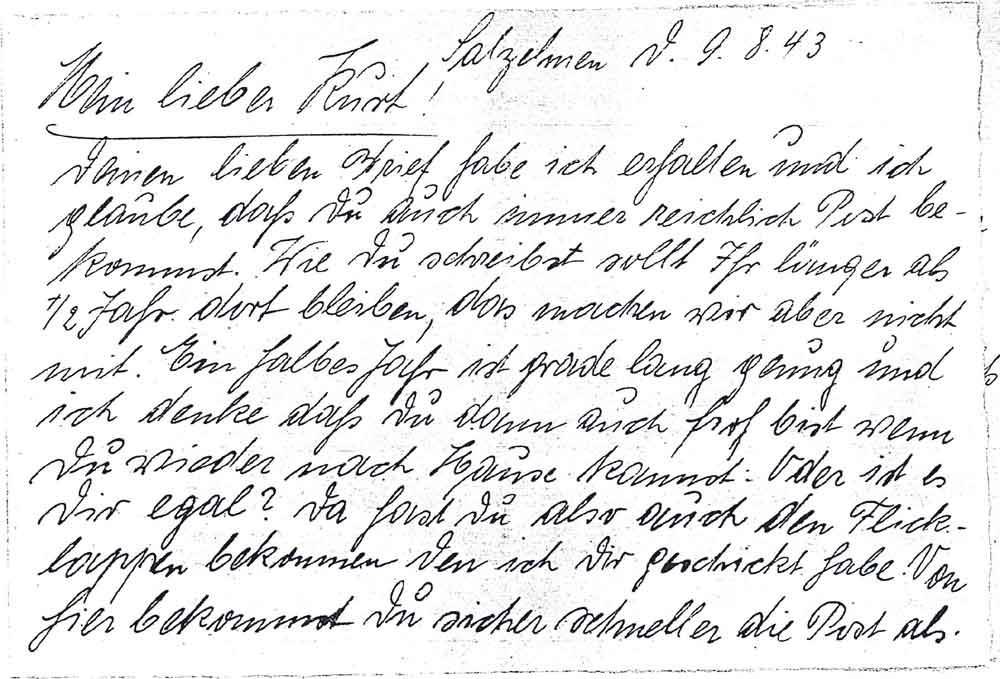 Salzelmen d. 9.8.43
Mein lieber Kurt!
Deinen lieben Brief habe ich erhalten und ich
glaube, daß Du auch immer reichlich Post be-
kommst. Wie Du schreibst sollt Ihr länger als
1/2 Jahr dort bleiben, das machen wir aber nicht
mit. Ein halbes Jahr ist grade lang genug und
ich denke daß Du dann auch froh bist wenn
Du wieder nach Hause kannst. Oder ist es
Dir egal? Da hast Du also auch den Flick-
lappen bekommen den ich Dir geschickt habe. Von
hier bekommst Du sicher schneller die Post als.